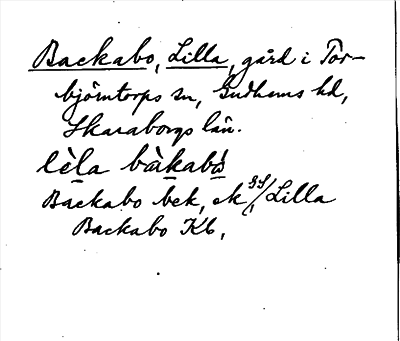 Backabo, Lilla, gård i Tor-
björntorps sn, Gudhems hd,
Skaraborgs län.
lèla bàkabò
Backabo bek, ek /Lilla
Backabo Kb,